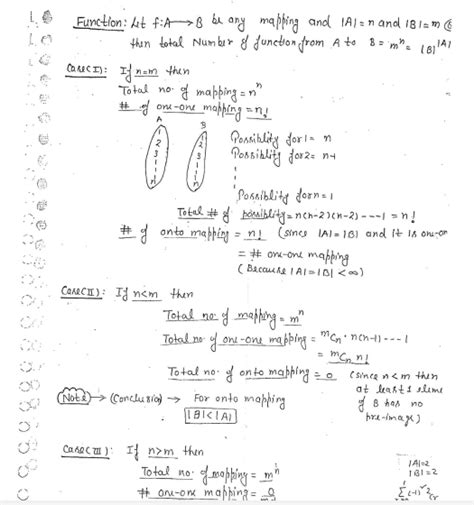 Function: Let f:A→B be any mapping and |A|=n and |B|=m
then total Number of function from A to B = mⁿ = |B|^|A|
Case(I): If n=m then
Total no. of mapping = nⁿ
# of one-one mapping = n!
A B
1 1
2 2
3 3
n n
Possiblity for 1 = n
Possiblity for 2 = n-1
Possiblity for n = 1
Total # of possiblity = n(n-2)(n-2) ---- 1 = n!
# of onto mapping = n! (since |A|=|B| and it is one-on
= # one-one mapping
(Because |A|=|B|<∞)
Case(II): If n<m then
Total no of mapping = mⁿ
Total no of one-one mapping = ᵐCₙ · n(n-1) --- 1
= ᵐCₙ n!
Total no. of onto mapping = 0 (since n<m then
at least 1 eleme
of B has no
pre-image)
Note → (Conclusion) → For onto mapping
|B|<|A|
Case(III): If n>m then
Total no. of mapping = mⁿ
# one-one mapping = 0
|A|=2
|B|=2